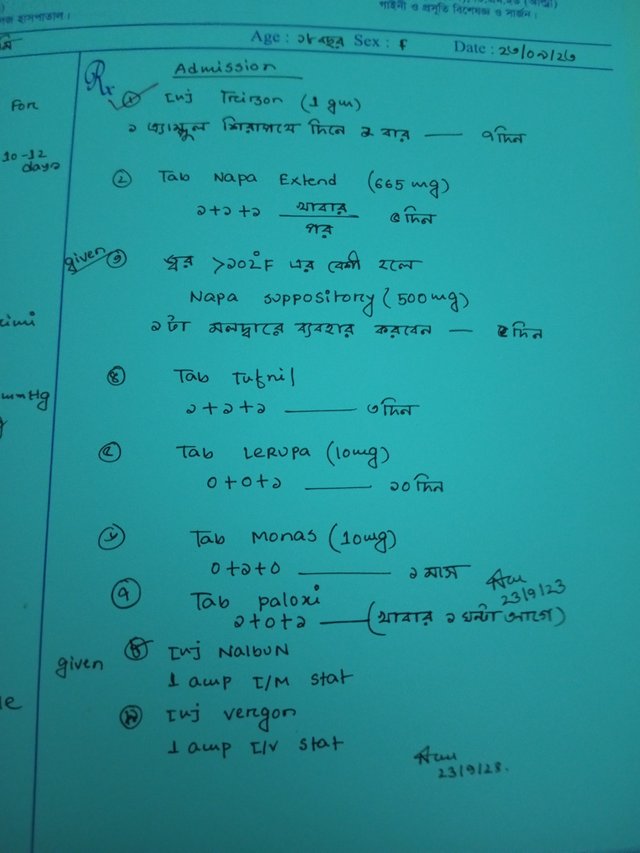 গাইনী ও প্রসূতি বিশেষজ্ঞ ও সার্জন।
হাসপাতাল।
Age : ১৮ বছর Sex : f Date : ২৩/০৯/২৩
For
10-12
days
Rx Admission
① Inj Trizon (1 gm)
১ এ্যাম্পুল শিরাপথে দিনে ২ বার — ৭ দিন
② Tab Napa Extend (665 mg)
১+১+১ খাবার পর ৫ দিন
given ③ জ্বর >১০২°F এর বেশী হলে
Napa suppository (500 mg)
১ টা মলদ্বারে ব্যবহার করবেন — ৫ দিন
mmHg
④ Tab Tufnil
১+১+১ — ৩ দিন
⑤ Tab Lerupa (10mg)
০+০+১ — ১০ দিন
⑥ Tab Monas (10mg)
০+১+০ — ১ মাস
23/9/23
⑦ Tab paloxi
১+০+১ — (খাবার ১ ঘন্টা আগে)
given ⑧ Inj Nalbun
1 amp I/M stat
⑨ Inj vergon
1 amp I/V stat
23/9/23.